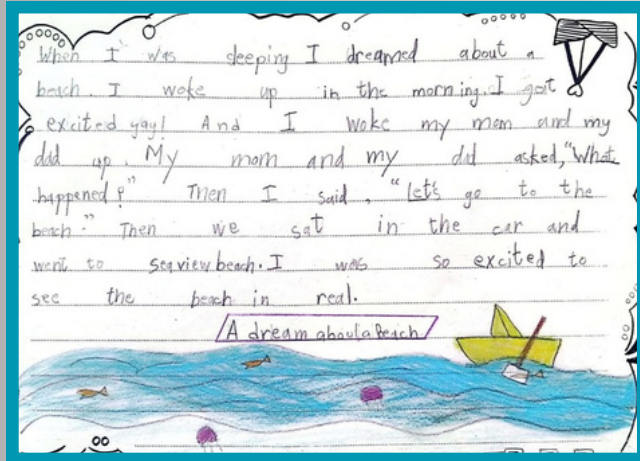 When I was sleeping I dreamed about a
beach. I woke up in the morning. I got
excited yay! And I woke my mom and my
dad up. My mom and my dad asked, "What
happened?" Then I said, "Let's go to the
beach." Then we sat in the car and
went to seaview beach. I was so excited to
see the beach in real.
A dream about a Beach